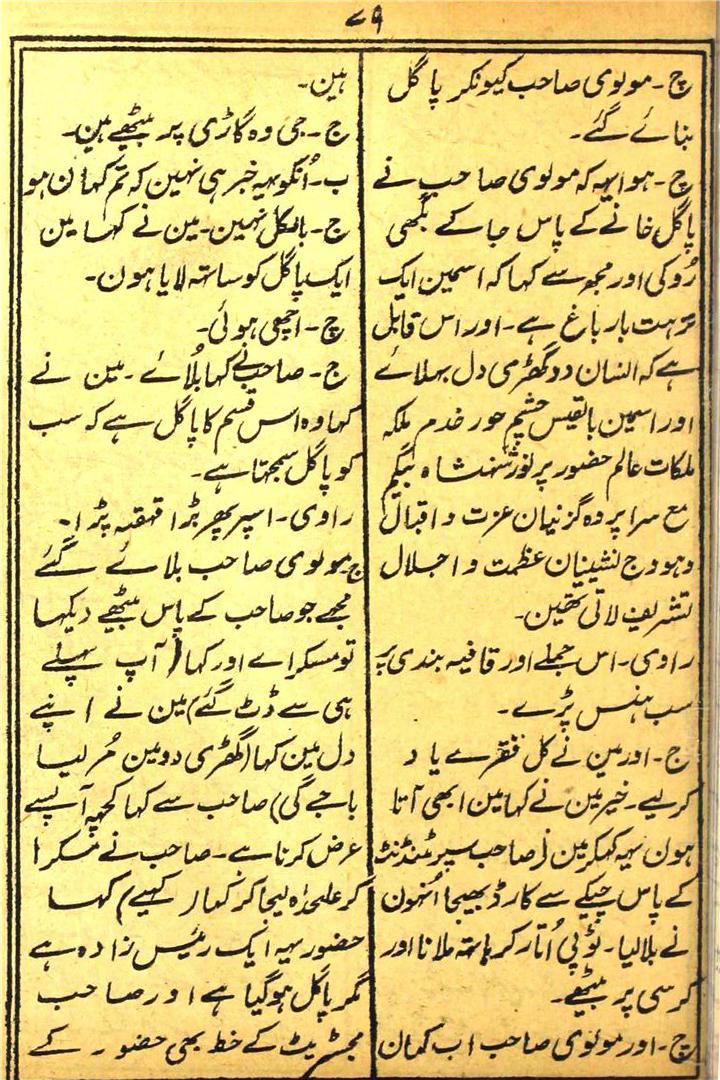 ۷۹
چ۔ مولوی صاحب کیونکر پاگل
بنائے گئے۔
چ۔ ہوا یہہ کہ مولوی صاحب نے
پاگل خانے کے پاس جا کے بگھی
رُوکی اور مجھ سے کہا کہ اسمین ایک
نزہت بار باغ ہے۔ اور اس قابل
ہے کہ انسان دو گھڑی دل بہلائے
اور اسمین بالقیس حشم حور خدم ملکہ
ملکات عالم حضور پر نور شہنشاہ بیگم
مع سراپردہ گزنیان عزت و اقبال
وہودج نشینیان عظمت و اجلال
تشریف لاتی تھین۔
راوی۔ اس جملے اور قافیہ بندی پر
سب ہنس پڑے۔
ج۔ اور مین نے کل فقرے یاد
کر لیے۔ خیر مین نے کہا مین ابھی آتا
ہون یہہ کہکر مین (صاحب سپرنٹنڈنٹ
کے پاس چپکے سے کارڈ بھیجا اُنہون
نے بلا لیا۔ ٹوپی اُتار کر ہاتہ ملانا اور
کرسی پر بیٹھے۔
چ۔ اور مولوی صاحب اب کہان
ہین۔
ج۔ جی وہ گاڑی پر بیٹھے ہین۔
ب۔ اُنکو یہہ خبر ہی نہین کہ تم کہان ہو
ج۔ بالکل نہین۔ مین نے کہا مین
ایک پاگل کو ساتہ لایا ہون۔
چ۔ اچھی ہوئی۔
ج۔ صاحب نے کہا بُلائے۔ مین نے
کہا وہ اس قسم کا پاگل ہے کہ سب
کو پاگل سمجہتا ہے۔
راوی۔ اسپر پھر بڑا قہقہہ پڑا۔
ج۔ مولوی صاحب بلائے گئے
مجھے جو صاحب کے پاس بیٹھے دیکہا
تو مسکراے اور کہا (آپ پہلے
ہی سے ڈٹ گئے) مین نے اپنے
دل مین کہا (گھڑی دو مین مُرلیا
باجے گی) صاحب سے کہا کچہہ آپسے
عرض کرنا ہے۔ صاحب نے مسکرا
کر علیحدٰہ لیجا کر کہا (کہیے) کہا
حضور یہہ ایک رئیس زادہ ہے
مگر پاگل ہو گیا ہے اور صاحب
مجسٹریٹ کے خط بھی حضور کے